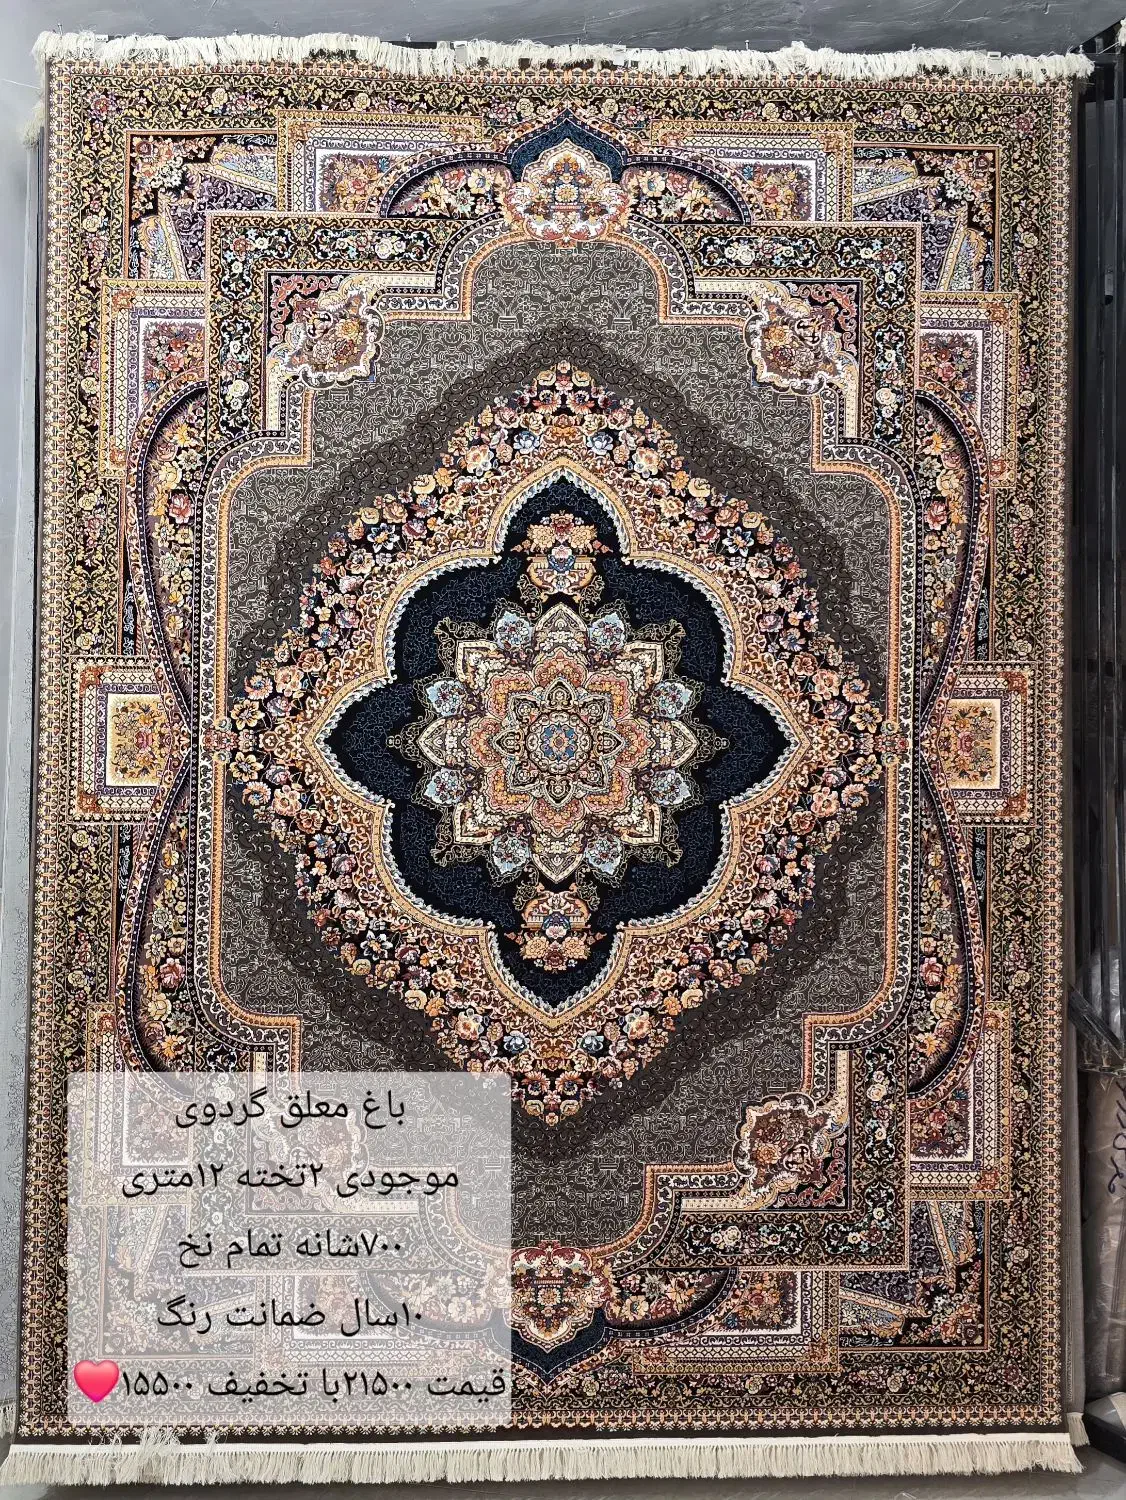 باغ معلق گردوی
موجودی ۲تخته ۱۲متری
۷۰۰شانه تمام نخ
۱۰سال ضمانت رنگ
قیمت ۲۱۵۰۰با تخفیف ۱۵۵۰۰❤️